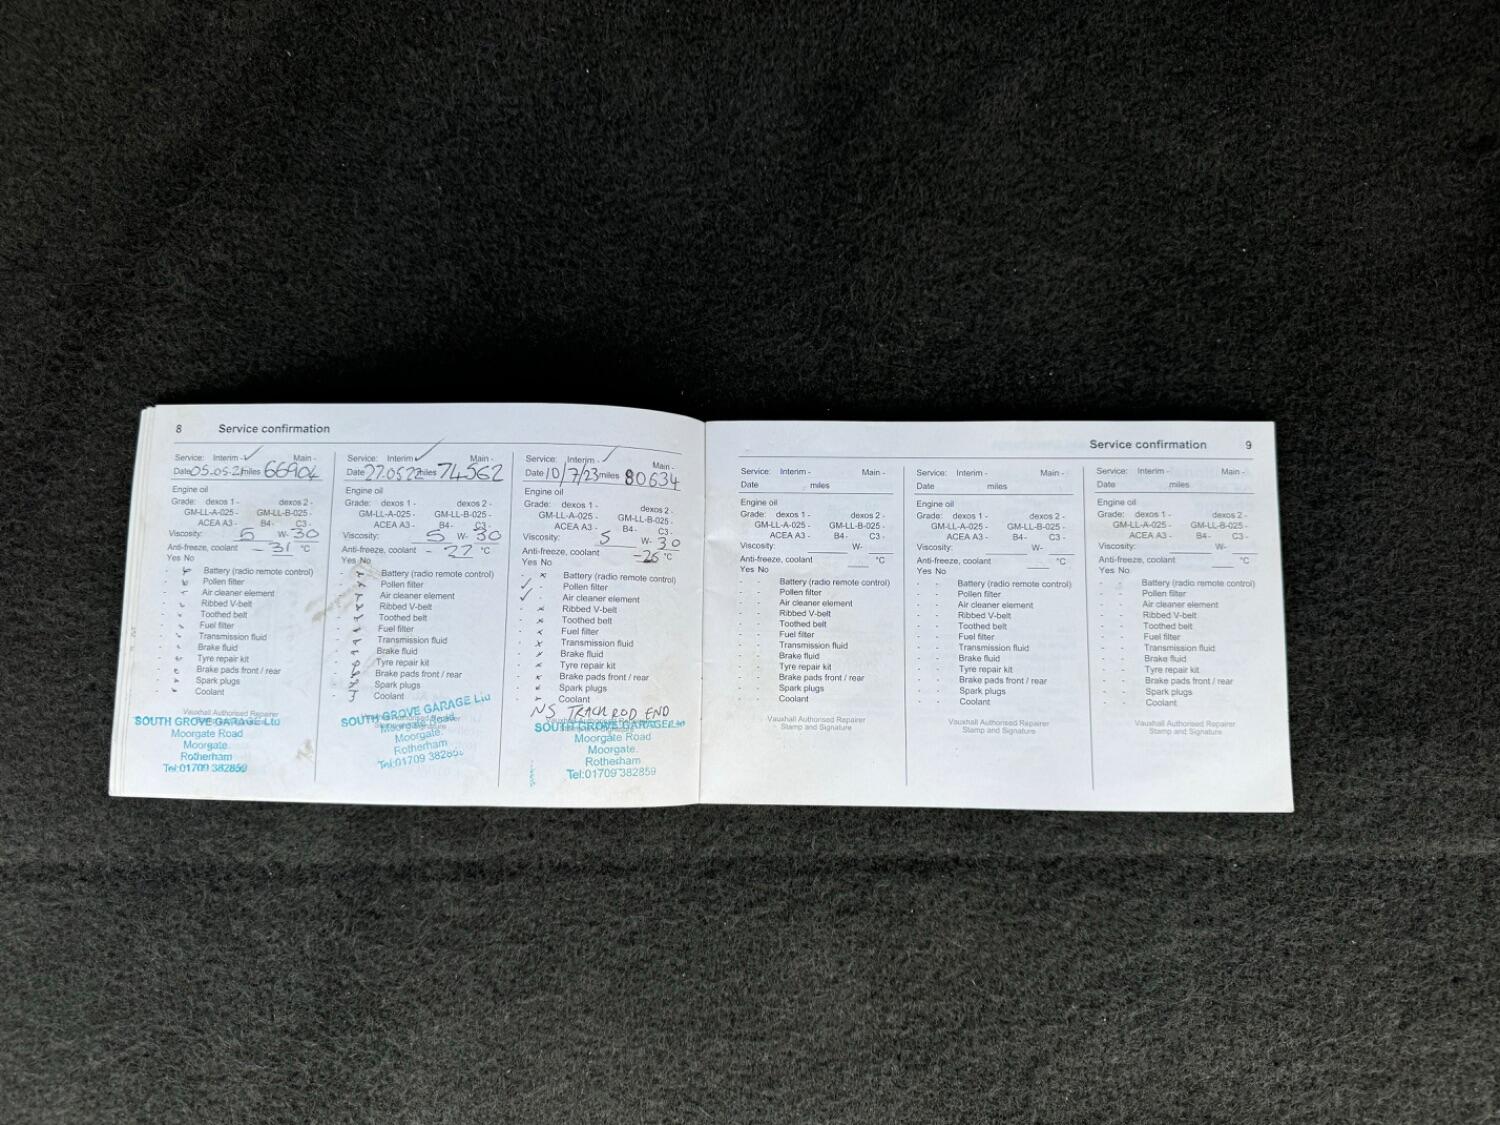 8 Service confirmation
Service: Interim - ✓ Main -
Date 05.05.21 miles 66904
Engine oil
Grade: dexos 1 - dexos 2 -
GM-LL-A-025 - GM-LL-B-025 -
ACEA A3 - B4 - C3 -
Viscosity: 5 W- 30
Anti-freeze, coolant - 31 °C
Yes No
Battery (radio remote control)
Pollen filter
Air cleaner element
Ribbed V-belt
Toothed belt
Fuel filter
Transmission fluid
Brake fluid
Tyre repair kit
Brake pads front / rear
Spark plugs
Coolant
Vauxhall Authorised Repairer
SOUTH GROVE GARAGE Ltd
Moorgate Road
Moorgate.
Rotherham
Tel:01709 382859
Service: Interim - ✓ Main -
Date 27.05.22 miles 74562
Engine oil
Grade: dexos 1 - dexos 2 -
GM-LL-A-025 - GM-LL-B-025 -
ACEA A3 - B4- C3 -
Viscosity: 5 W- 30
Anti-freeze, coolant - 27 °C
Yes No
Battery (radio remote control)
Pollen filter
Air cleaner element
Ribbed V-belt
Toothed belt
Fuel filter
Transmission fluid
Brake fluid
Tyre repair kit
Brake pads front / rear
Spark plugs
Coolant
SOUTH GROVE GARAGE Ltd
Moorgate Road
Moorgate.
Rotherham
Tel:01709 382859
Service: Interim - ✓ Main -
Date 10/7/23 miles 80634
Engine oil
Grade: dexos 1 - dexos 2 -
GM-LL-A-025 - GM-LL-B-025 -
ACEA A3 - B4- C3 -
Viscosity: 5 W- 30
Anti-freeze, coolant -26 °C
Yes No
Battery (radio remote control)
✓ Pollen filter
✓ Air cleaner element
Ribbed V-belt
Toothed belt
Fuel filter
Transmission fluid
Brake fluid
Tyre repair kit
Brake pads front / rear
Spark plugs
Coolant
NS TRACK ROD END
Vauxhall Authorised Repairer
SOUTH GROVE GARAGE Ltd
Moorgate Road
Moorgate.
Rotherham
Tel:01709 382859
Service confirmation 9
Service: Interim - Main -
Date miles
Engine oil
Grade: dexos 1 - dexos 2 -
GM-LL-A-025 - GM-LL-B-025 -
ACEA A3 - B4- C3 -
Viscosity: W-
Anti-freeze, coolant °C
Yes No
Battery (radio remote control)
Pollen filter
Air cleaner element
Ribbed V-belt
Toothed belt
Fuel filter
Transmission fluid
Brake fluid
Tyre repair kit
Brake pads front / rear
Spark plugs
Coolant
Vauxhall Authorised Repairer
Stamp and Signature
Service: Interim - Main -
Date miles
Engine oil
Grade: dexos 1 - dexos 2 -
GM-LL-A-025 - GM-LL-B-025 -
ACEA A3 - B4- C3 -
Viscosity: W-
Anti-freeze, coolant °C
Yes No
Battery (radio remote control)
Pollen filter
Air cleaner element
Ribbed V-belt
Toothed belt
Fuel filter
Transmission fluid
Brake fluid
Tyre repair kit
Brake pads front / rear
Spark plugs
Coolant
Vauxhall Authorised Repairer
Stamp and Signature
Service: Interim - Main -
Date miles
Engine oil
Grade: dexos 1 - dexos 2 -
GM-LL-A-025 - GM-LL-B-025 -
ACEA A3 - B4- C3 -
Viscosity: W-
Anti-freeze, coolant °C
Yes No
Battery (radio remote control)
Pollen filter
Air cleaner element
Ribbed V-belt
Toothed belt
Fuel filter
Transmission fluid
Brake fluid
Tyre repair kit
Brake pads front / rear
Spark plugs
Coolant
Vauxhall Authorised Repairer
Stamp and Signature